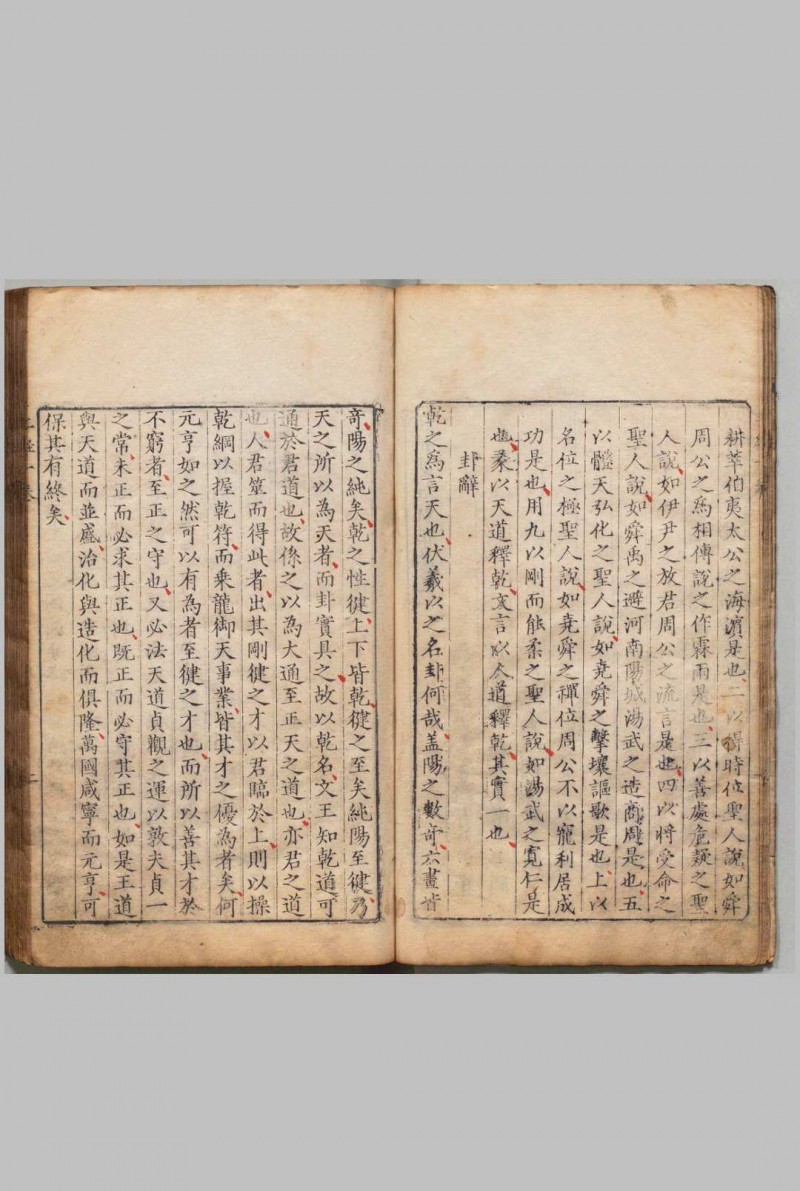 耕莘伯夷太公之海濱是也二以得時位聖人說如舜
周公之為相傅說之作霖雨是也三以善處危疑之聖
人說如伊尹之放君周公之流言是也四以將受命之
聖人說如舜禹之避河南陽城湯武之造商周是也五
以體天弘化之聖人說如堯舜之擊壤謳歌是也上以
名位之極聖人說如堯舜之禪位周公不以寵利居成
功是也用九以剛而能柔之聖人說如湯武之寬仁是
也彖以天道釋乾文言以人道釋乾其實一也
卦辭
乾之為言天也伏羲以之名卦何哉蓋陽之數奇六畫皆
奇陽之純矣乾之性健上下皆乾健之至矣純陽至健乃
天之所以為天者而卦實具之故以乾名文王知乾道可
通於君道也故係之以為大通至正天之道也亦君之道
也人君筮而得此者出其剛健之才以君臨於上則以操
乾綱以握乾符而乘龍御天事業皆其才之優為者矣何
元亨如之然可以有為者至健之才也而所以善其才於
不窮者至正之守也又必法天道貞觀之運以敦夫貞一
之常未正而必求其正也既正而必守其正也如是王道
與天道而並盛治化與造化而俱隆萬國咸寧而元亨可
保其有終矣